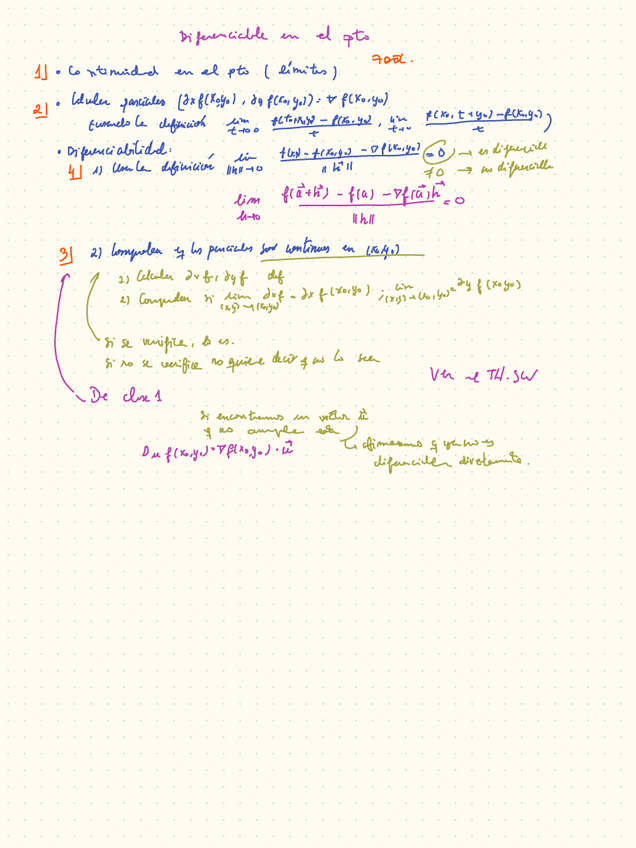 Diferenciable en el pto
1) • Continuidad en el pto (límites)
2) • Calcular parciales (∂x f(x0,y0), ∂y f(x0,y0)) = ∇ f(x0,y0)
Usando la definición lim t→0 f(t+x0,y0) - f(x0,y0) / t , lim t→0 f(x0, t+y0) - f(x0,y0) / t )
• Diferenciabilidad:
4) 1) Usar la definición lim ||h||→0 f(x,y) - f(x0,y0) - ∇f(x0,y0) / ||h|| = 0 → es diferenciable
≠0 → no diferenciable
lim h→0 f(a⃗+h⃗) - f(a) - ∇f(a⃗)h⃗ / ||h|| = 0
3) 2) Comprobar q los parciales son continuas en (x0,y0)
1) Calcular ∂x f, ∂y f def
2) Comprobar si lim (x,y)→(x0,y0) ∂x f = ∂x f(x0,y0) ; lim (x,y)→(x0,y0) = ∂y f(x0,y0)
Si se verifica, lo es.
Si no se verifica no quiere decir q no lo sea
Ver el TH.
De clase 1
Si encontramos un vector u⃗
q no cumple esta
Du f(x0,y0) = ∇f(x0,y0) · u⃗
afirmamos q ya no es
diferenciable directamente.